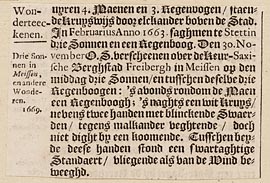 Won-
derteec-
kenen.
Drie Son-
nen in
Meissen,
en andere
Wonde-
ren.
1669.
nijren 4. Maenen en 3. Regenbogen / staen-
de kruyswijs door elckander boven de Stad.
In Februarius Anno 1663. saghmen te Stettin
drie Sonnen en een Regenboog. Den 30. No-
vember O. S. verschenen over de Keur-Saxi-
sche Berghstad Freibergh in Meissen op den
middag drie Sonnen / en tusschen deselve drie
Regenboogen: 's avonds rondom de Maen
een Regenboogh; 's naghts een wit kruys /
nevens twee handen met blinckende Swaer-
den / tegens malkander veghtende / doch
niet dight by een koomende. Tusschen bey-
de deese handen stond een swartaghtige
Standaert / vliegende als van de Wind be-
weeghd.